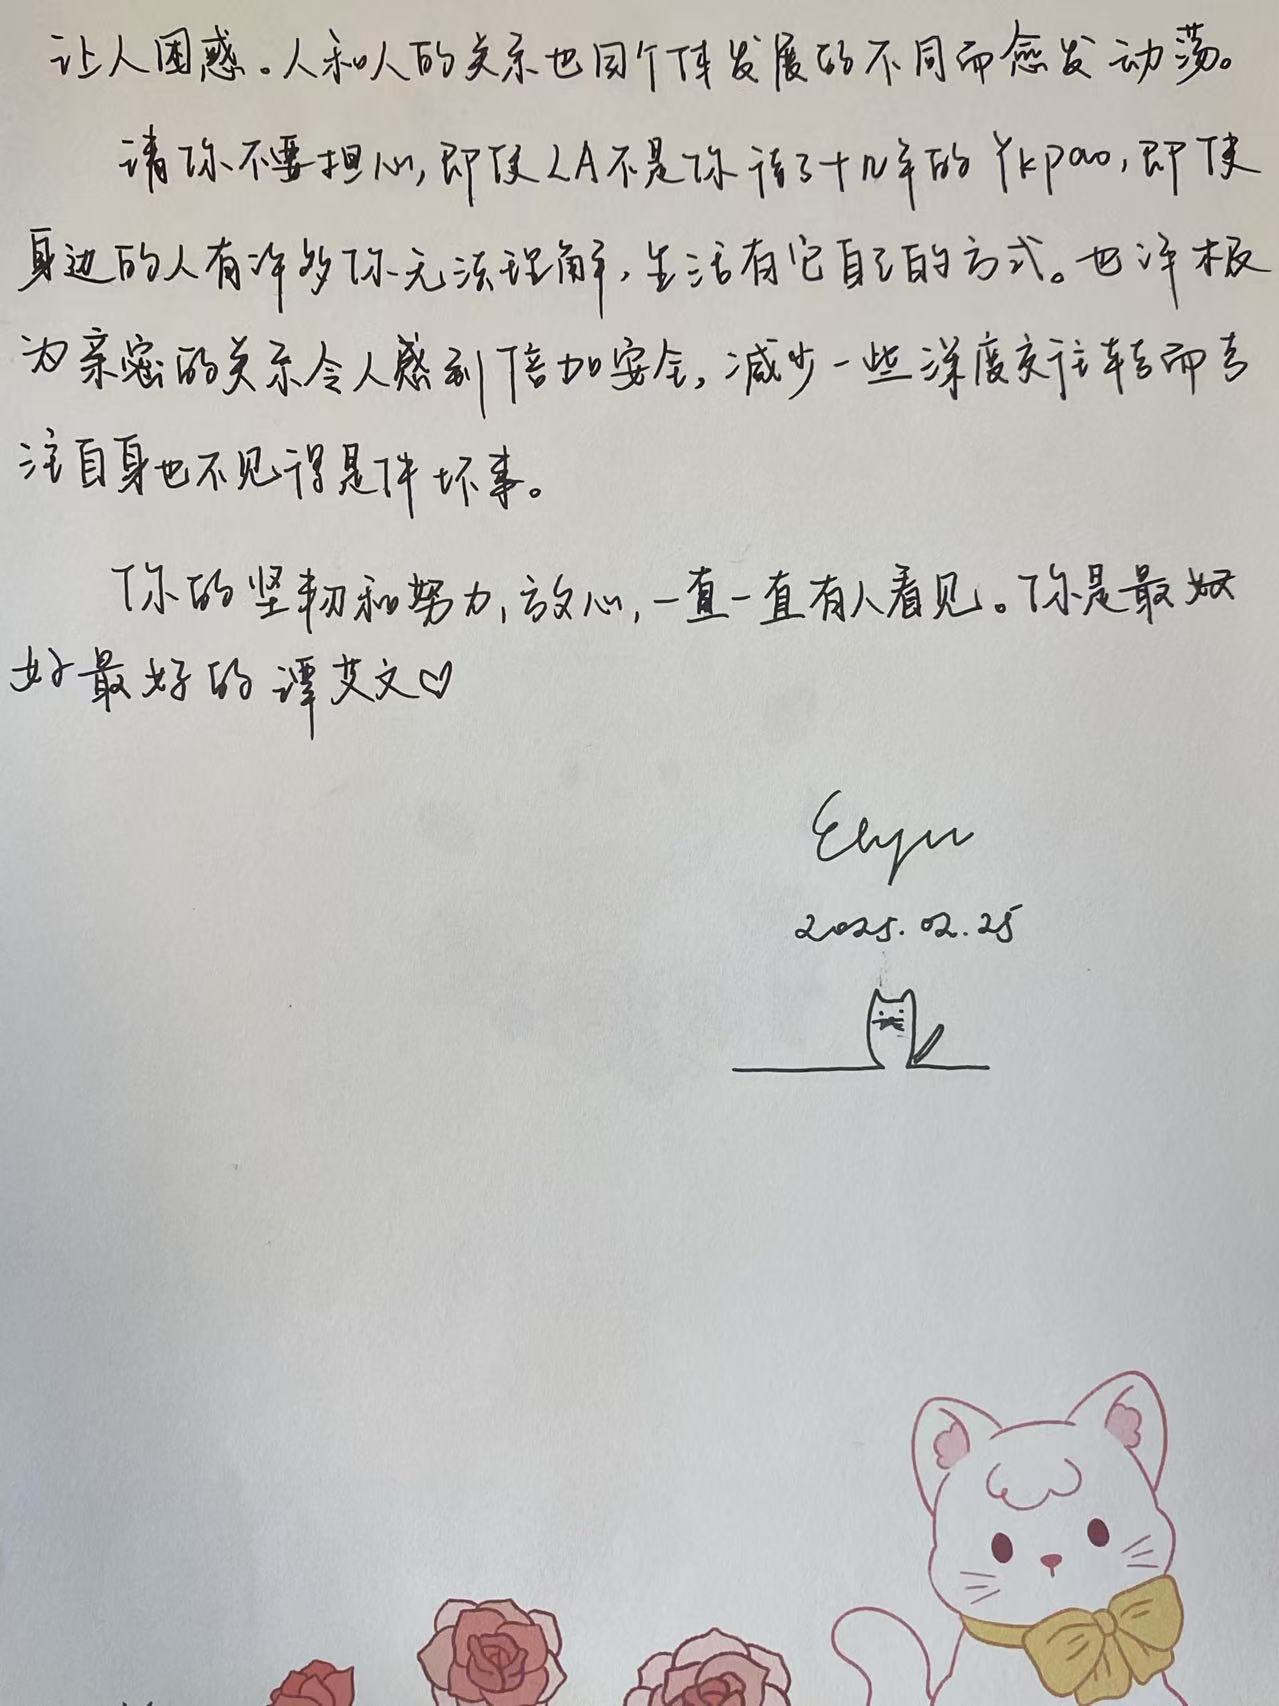 让人困惑。人和人的关系也因个体发展的不同而愈发动荡。
请你不要担心,即使LA不是你待了十几年的Ykpao,即使
身边的人有许多你无法理解,生活有它自己的方式。也许极
为亲密的关系令人感到倍加安全,减少一些深度交往转而专
注自身也不见得是件坏事。
你的坚韧和努力,放心,一直一直有人看见。你是最好
好最好的谭艾文♡
2025.02.25